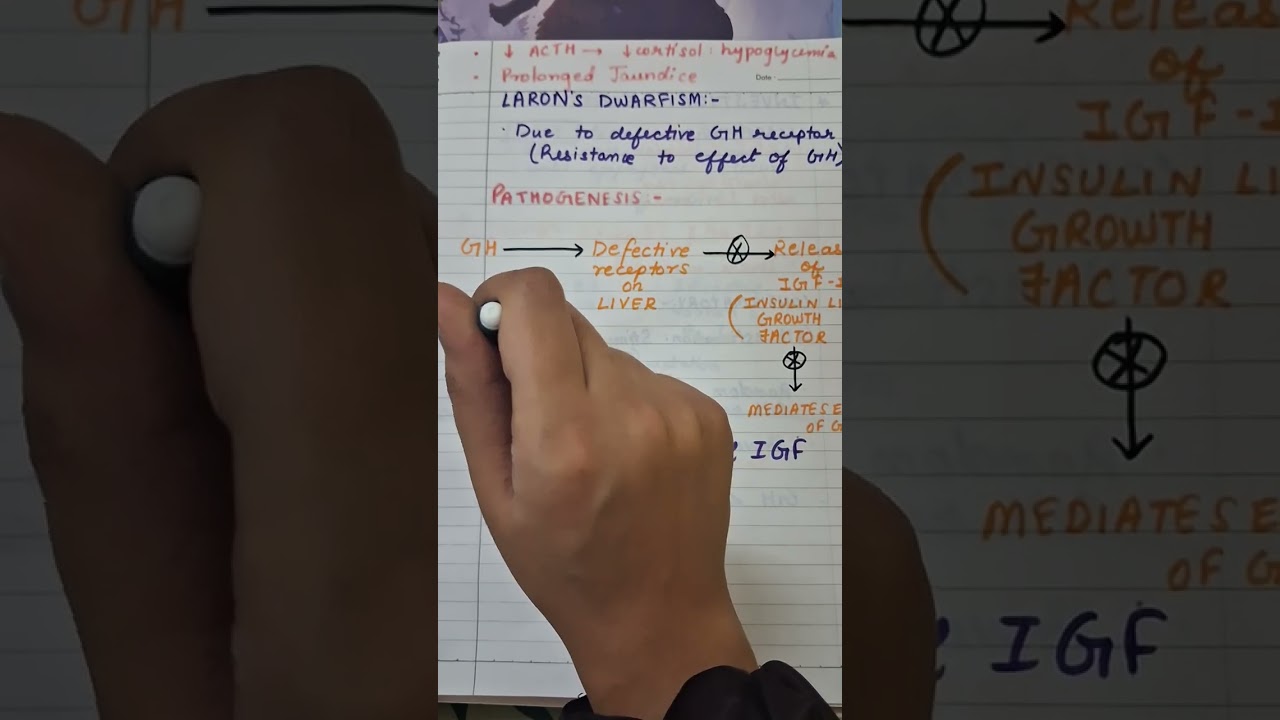 · ↓ ACTH → ↓ cortisol : hypoglycemia
· Prolonged Jaundice
Date:
LARON'S DWARFISM:-
· Due to defective GH receptor
(Resistance to effect of GH)
PATHOGENESIS -
GH → Defective → Releas
receptors of
on IGF-I
LIVER (INSULIN LI
GROWTH
FACTOR
MEDIATES E
OF G
IGF